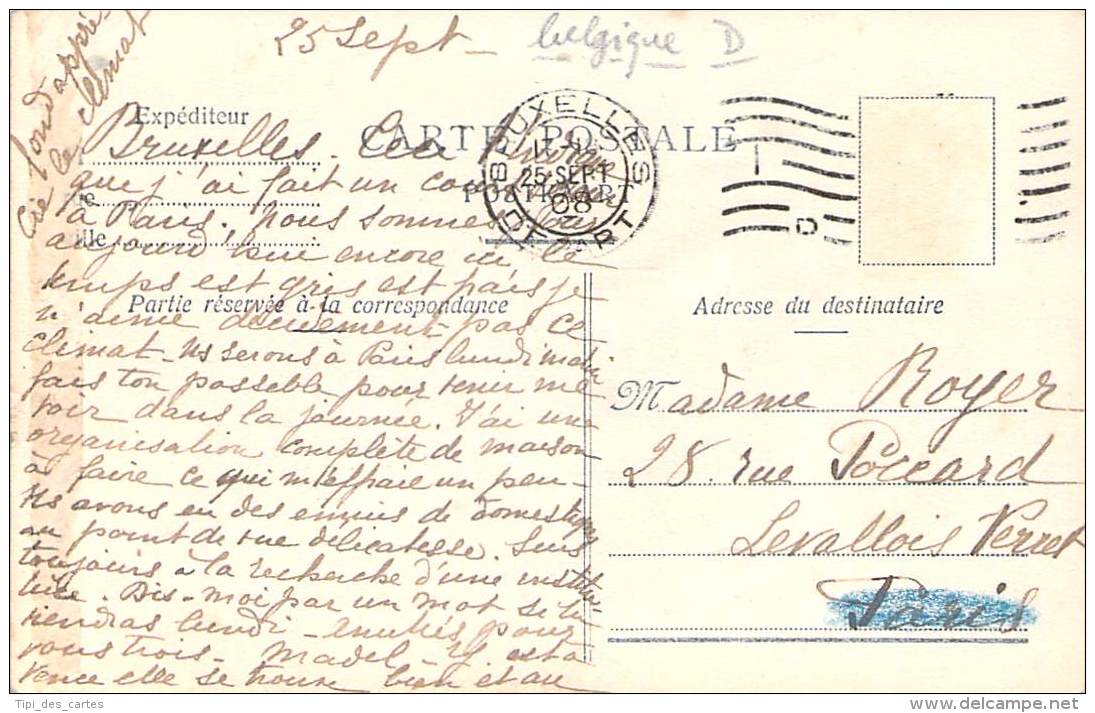 25 Sept
belgique D
Expéditeur
CARTE POSTALE
POSTKAART
BRUXELLES
25 SEPT
08
DEPART
D
Bruxelles.
que j'ai fait un
à Paris. Nous sommes
aujourd'hui encore ici le
temps est gris est pais je
n'aime decidement pas ce
climat Ns serons à Paris lundi matin
fais ton possible pour venir me
voir dans la journée. J'ai une
organisation complète de maison
à faire ce qui m'effraie un peu
Ns avons eu des ennuis de domestiques
au point de vue délicatesse. Suis
toujours à la recherche d'une institu
trice. Dis-moi par un mot si tu
viendras lundi - amitiés pour
vous trois - Madel - Y. est à
Vence elle se trouve bien et au
fond appré-
cie le climat
Partie réservée à la correspondance
Adresse du destinataire
Madame Royer
28. rue Poccard
Levallois Perret
Paris
Tipi_des_cartes
www.delcampe.net